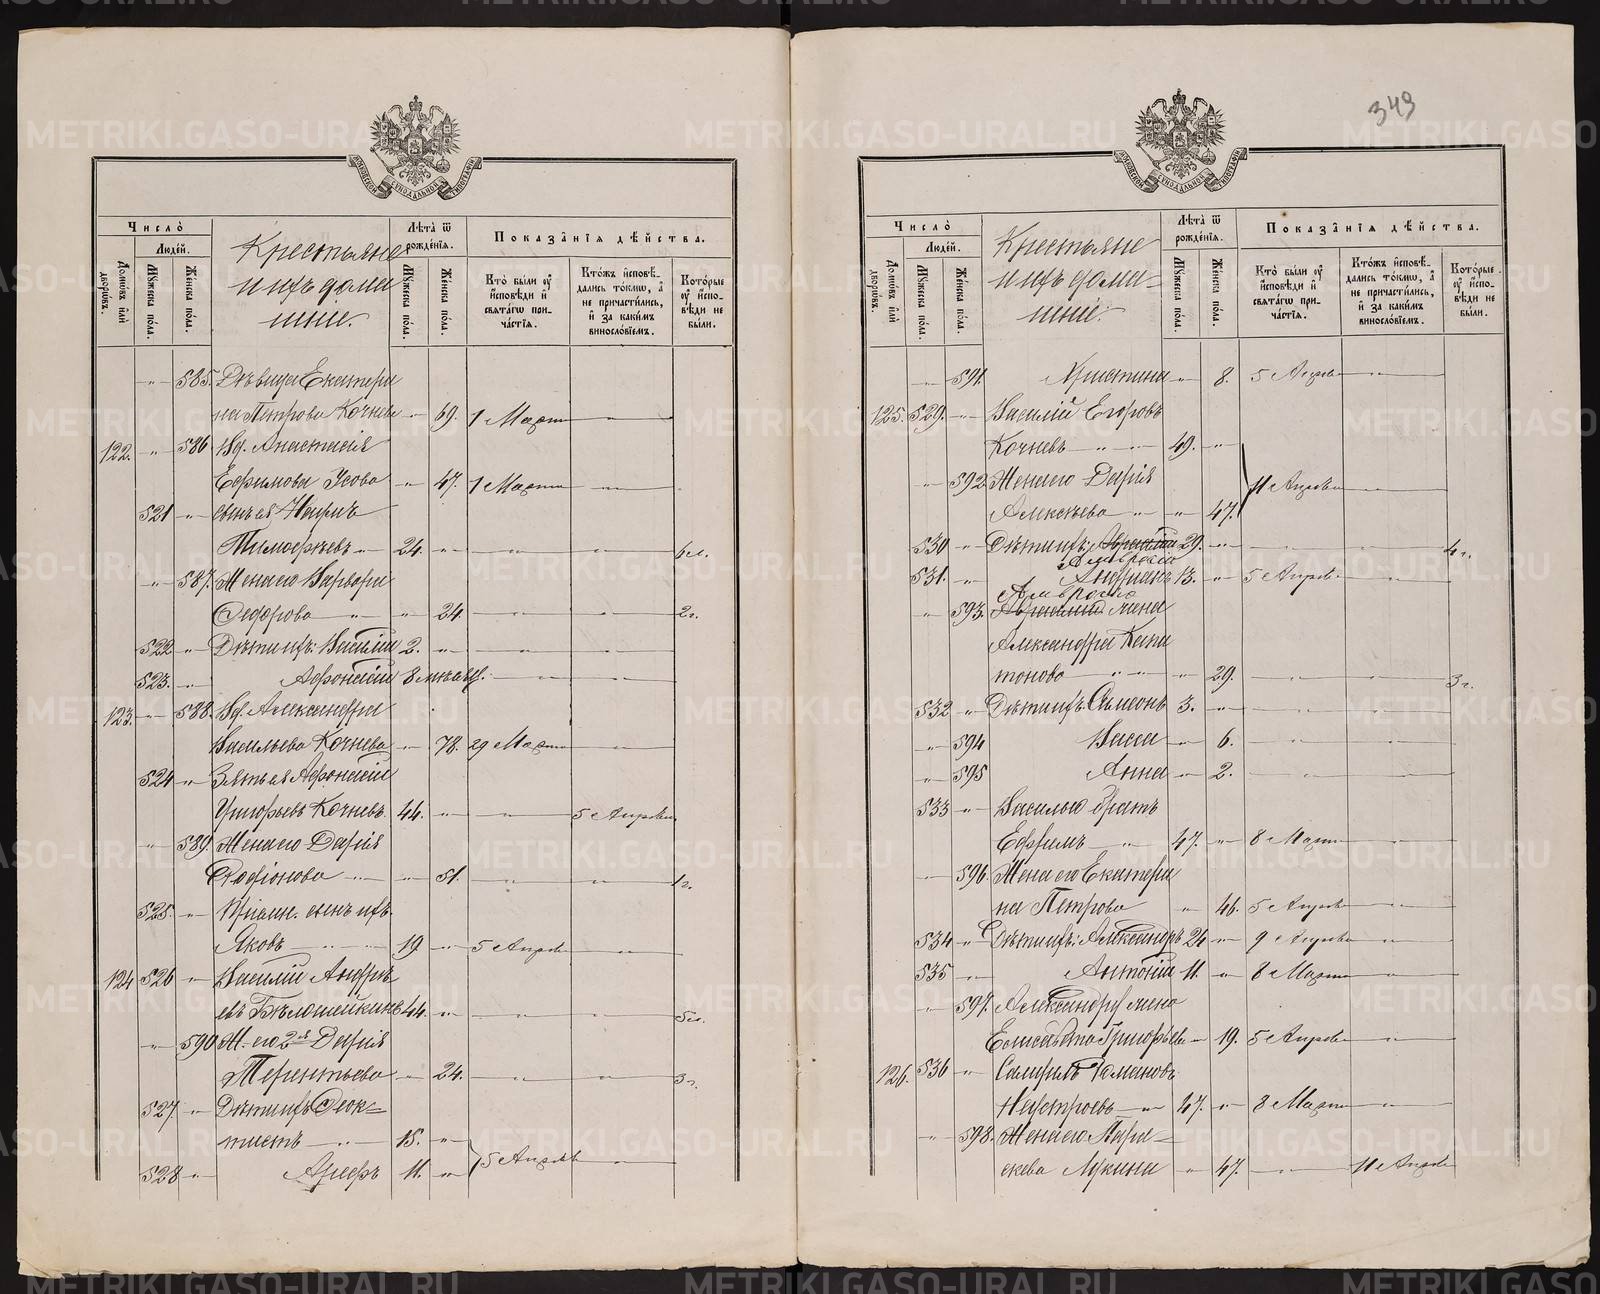 349
Число̀
Людей.
Домѡвъ илѝ дворѡвъ.
Мꙋжеска по́ла.
Же́нска по́ла.
Крестьяне
и ихъ домаш
ніе.
Лѣ́та ѿ рожде́нїѧ.
Мꙋжеска по́ла.
Же́нска по́ла.
Показа̑нїѧ дѣ́йства.
Кто̀ бы́ли ᲂу҆ и҆сповѣди и҆ свѧта́гѡ прича́стїѧ.
Кто́жъ и҆сповѣ́дались то́кмѡ, а҆ не причасти́лись, и҆ за каки́мъ виносло́вїемъ.
Кото́рые ᲂу҆ и҆сповѣди не бы́ли.
" 585. Дѣвица Екатери
на Петрова Кочнева " 69. 1 Марта "
122. " 586 Вд. Анастасія
Ефимова Усова " 47. 1 Марта "
521 " сынъ ея
Тимофѣевъ " 24. " " " 6 л.
" 587. Жена его Варвара
Федорова " " 24. " " 2 г.
522 " Дѣти ихъ: Василій 2. " "
523. " Афонасій 8 мѣсяц. " "
123. " 588. Вд. Александра
Васильева Кочнева " 78. 29 Марта "
524 " Зять ея Афонасій
Григорьевъ Кочневъ 44. " " 5 Апрѣля
" 589. Жена его Дарія
Родіонова " " 51. " " 1 г.
525. " Пріемн. сынъ ихъ
Яковъ " " 19 " 5 Апрѣля "
124 526 " Василій Андрѣе
евъ Бѣлошейкинъ 44. " " " 5 л.
" 590 Ж. его 2я Дарія
Терентьева " 24. " " 3 г.
527 " Дѣти ихъ Феок=
тистъ " 15. "
528 " Арефъ 11. " 5 Апрѣля "
Число̀
Людей.
Домѡвъ илѝ дворѡвъ.
Мꙋжеска по́ла.
Же́нска по́ла.
Крестьяне
и ихъ домаш=
ніе.
Лѣ́та ѿ рожде́нїѧ.
Мꙋжеска по́ла.
Же́нска по́ла.
Показа̑нїѧ дѣ́йства.
Кто̀ бы́ли ᲂу҆ и҆сповѣди и҆ свѧта́гѡ прича́стїѧ.
Кто́жъ и҆сповѣ́дались то́кмѡ, а҆ не причасти́лись, и҆ за каки́мъ виносло́вїемъ.
Кото́рые ᲂу҆ и҆сповѣди не бы́ли.
" 591. Христина " 8. 5 Апрѣля "
125. 529. " Василій Егоровъ
Кочневъ " " 49. "
" 592 Жена его Дарія 11 Апрѣля "
Алексѣева " " 47.
530 " Дѣти ихъ: 29. " " " 4 г.
Амвросій
531. " Андріанъ 13. " 5 Апрѣля "
Амвросія
" 593. жена
Александра Капи
тонова " " 29. " " 3 г.
532 " Дѣти ихъ: Симеонъ 3. " " "
" 594 Васса " 6. " "
" 595 Анна " 2. " "
533 " Василья братъ
Ефимъ " 47. " 8 Марта "
" 596 Жена его Екатери
на Петрова " 46. 5 Апрѣля "
534 " Дѣти ихъ: Александръ 24 " 9 Апрѣля "
535 " Антоній 11. " 8 Марта "
" 597. Александра жена
Елисавета Григорьева " 19. 5 Апрѣля "
126. 536 " Романовъ
" 47. " 8 Марта "
" 598. Жена его Пара=
скева Лукина " 47. " 11 Апрѣля
METRIKI.GASO-URAL.RU